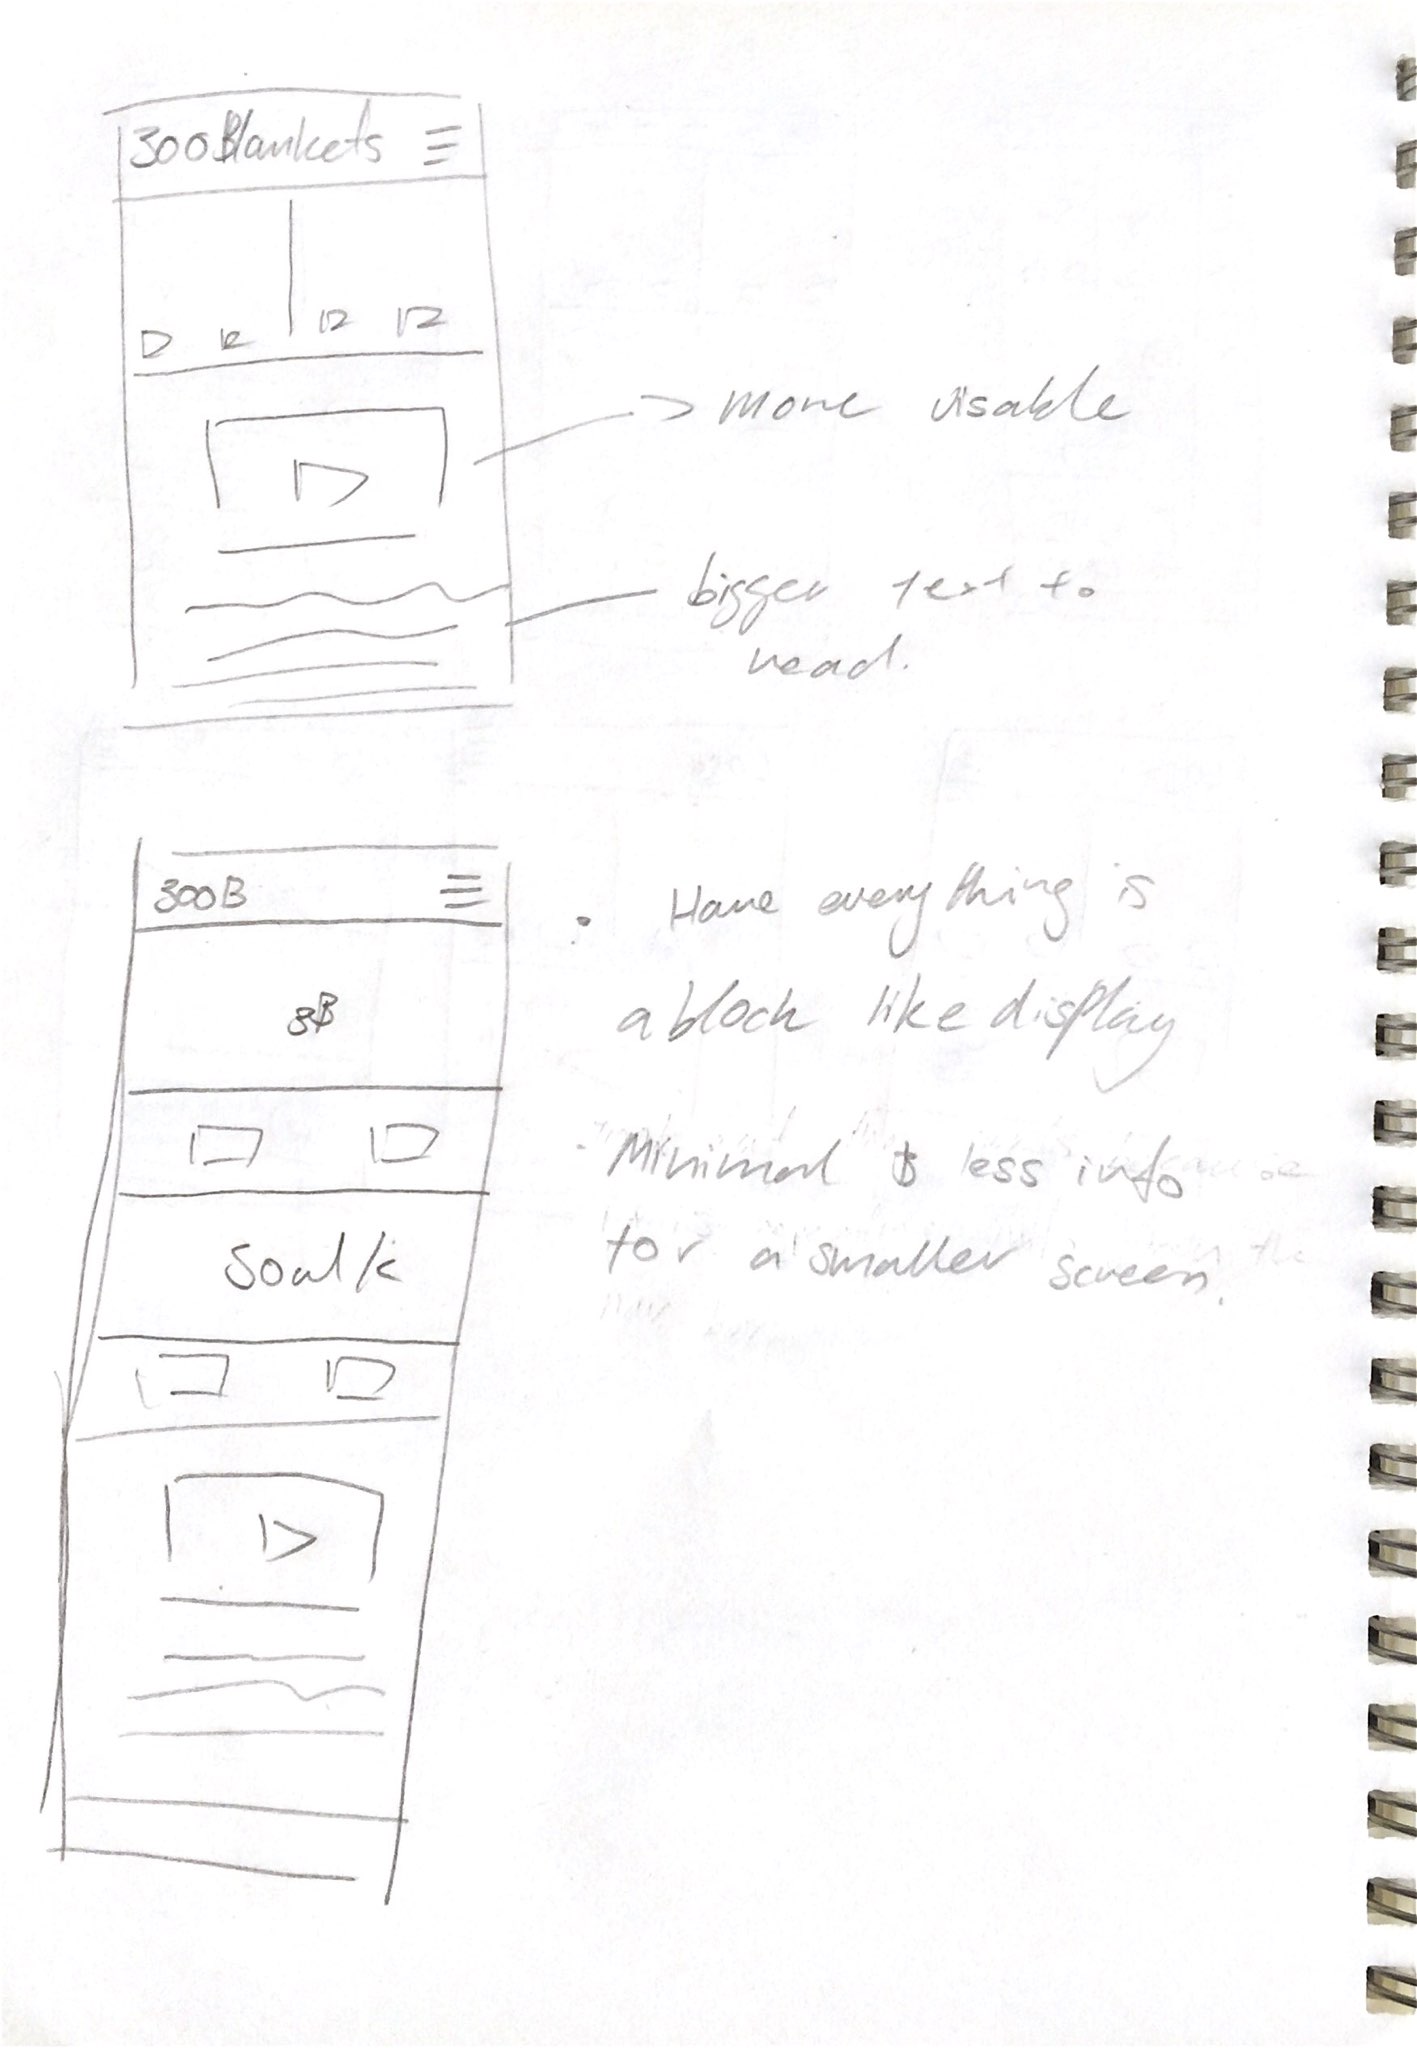 300Blankets
more visable
bigger text to
read.
300B
Have everything is
a block like display
3B
Minimal & less info
for a smaller screen.